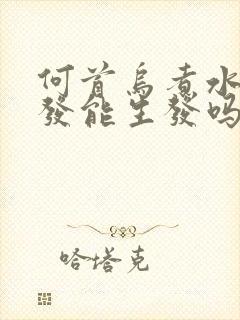 何首乌煮水
發能生發吗
哈塔克